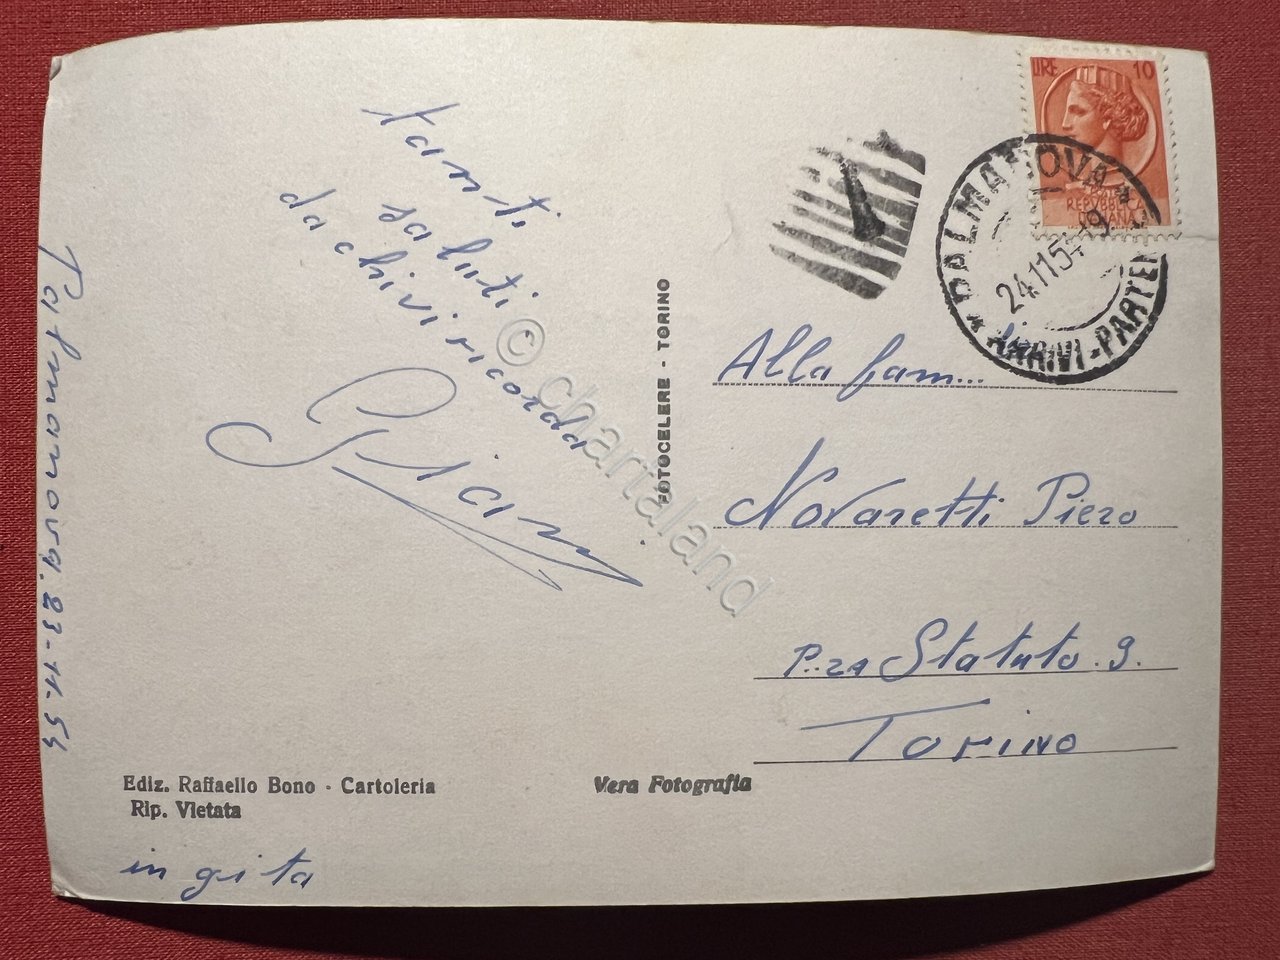 tanti
saluti
da chi vi ricorda
Palmanova. 23-11-54
in gita
Ediz. Raffaello Bono - Cartoleria
Rip. Vietata
Vera Fotografia
FOTOCELERE - TORINO
LIRE 10
REPUBBLICA
ITALIANA
* PALMANOVA *
ARRIVI-PARTEN
24.11.54-19
Alla fam...
Novaretti Piero
P.za Statuto. 9.
Torino
© chartaland